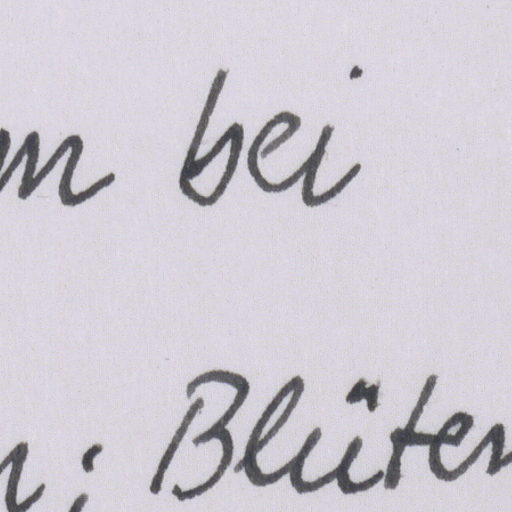 bei
; Blüten